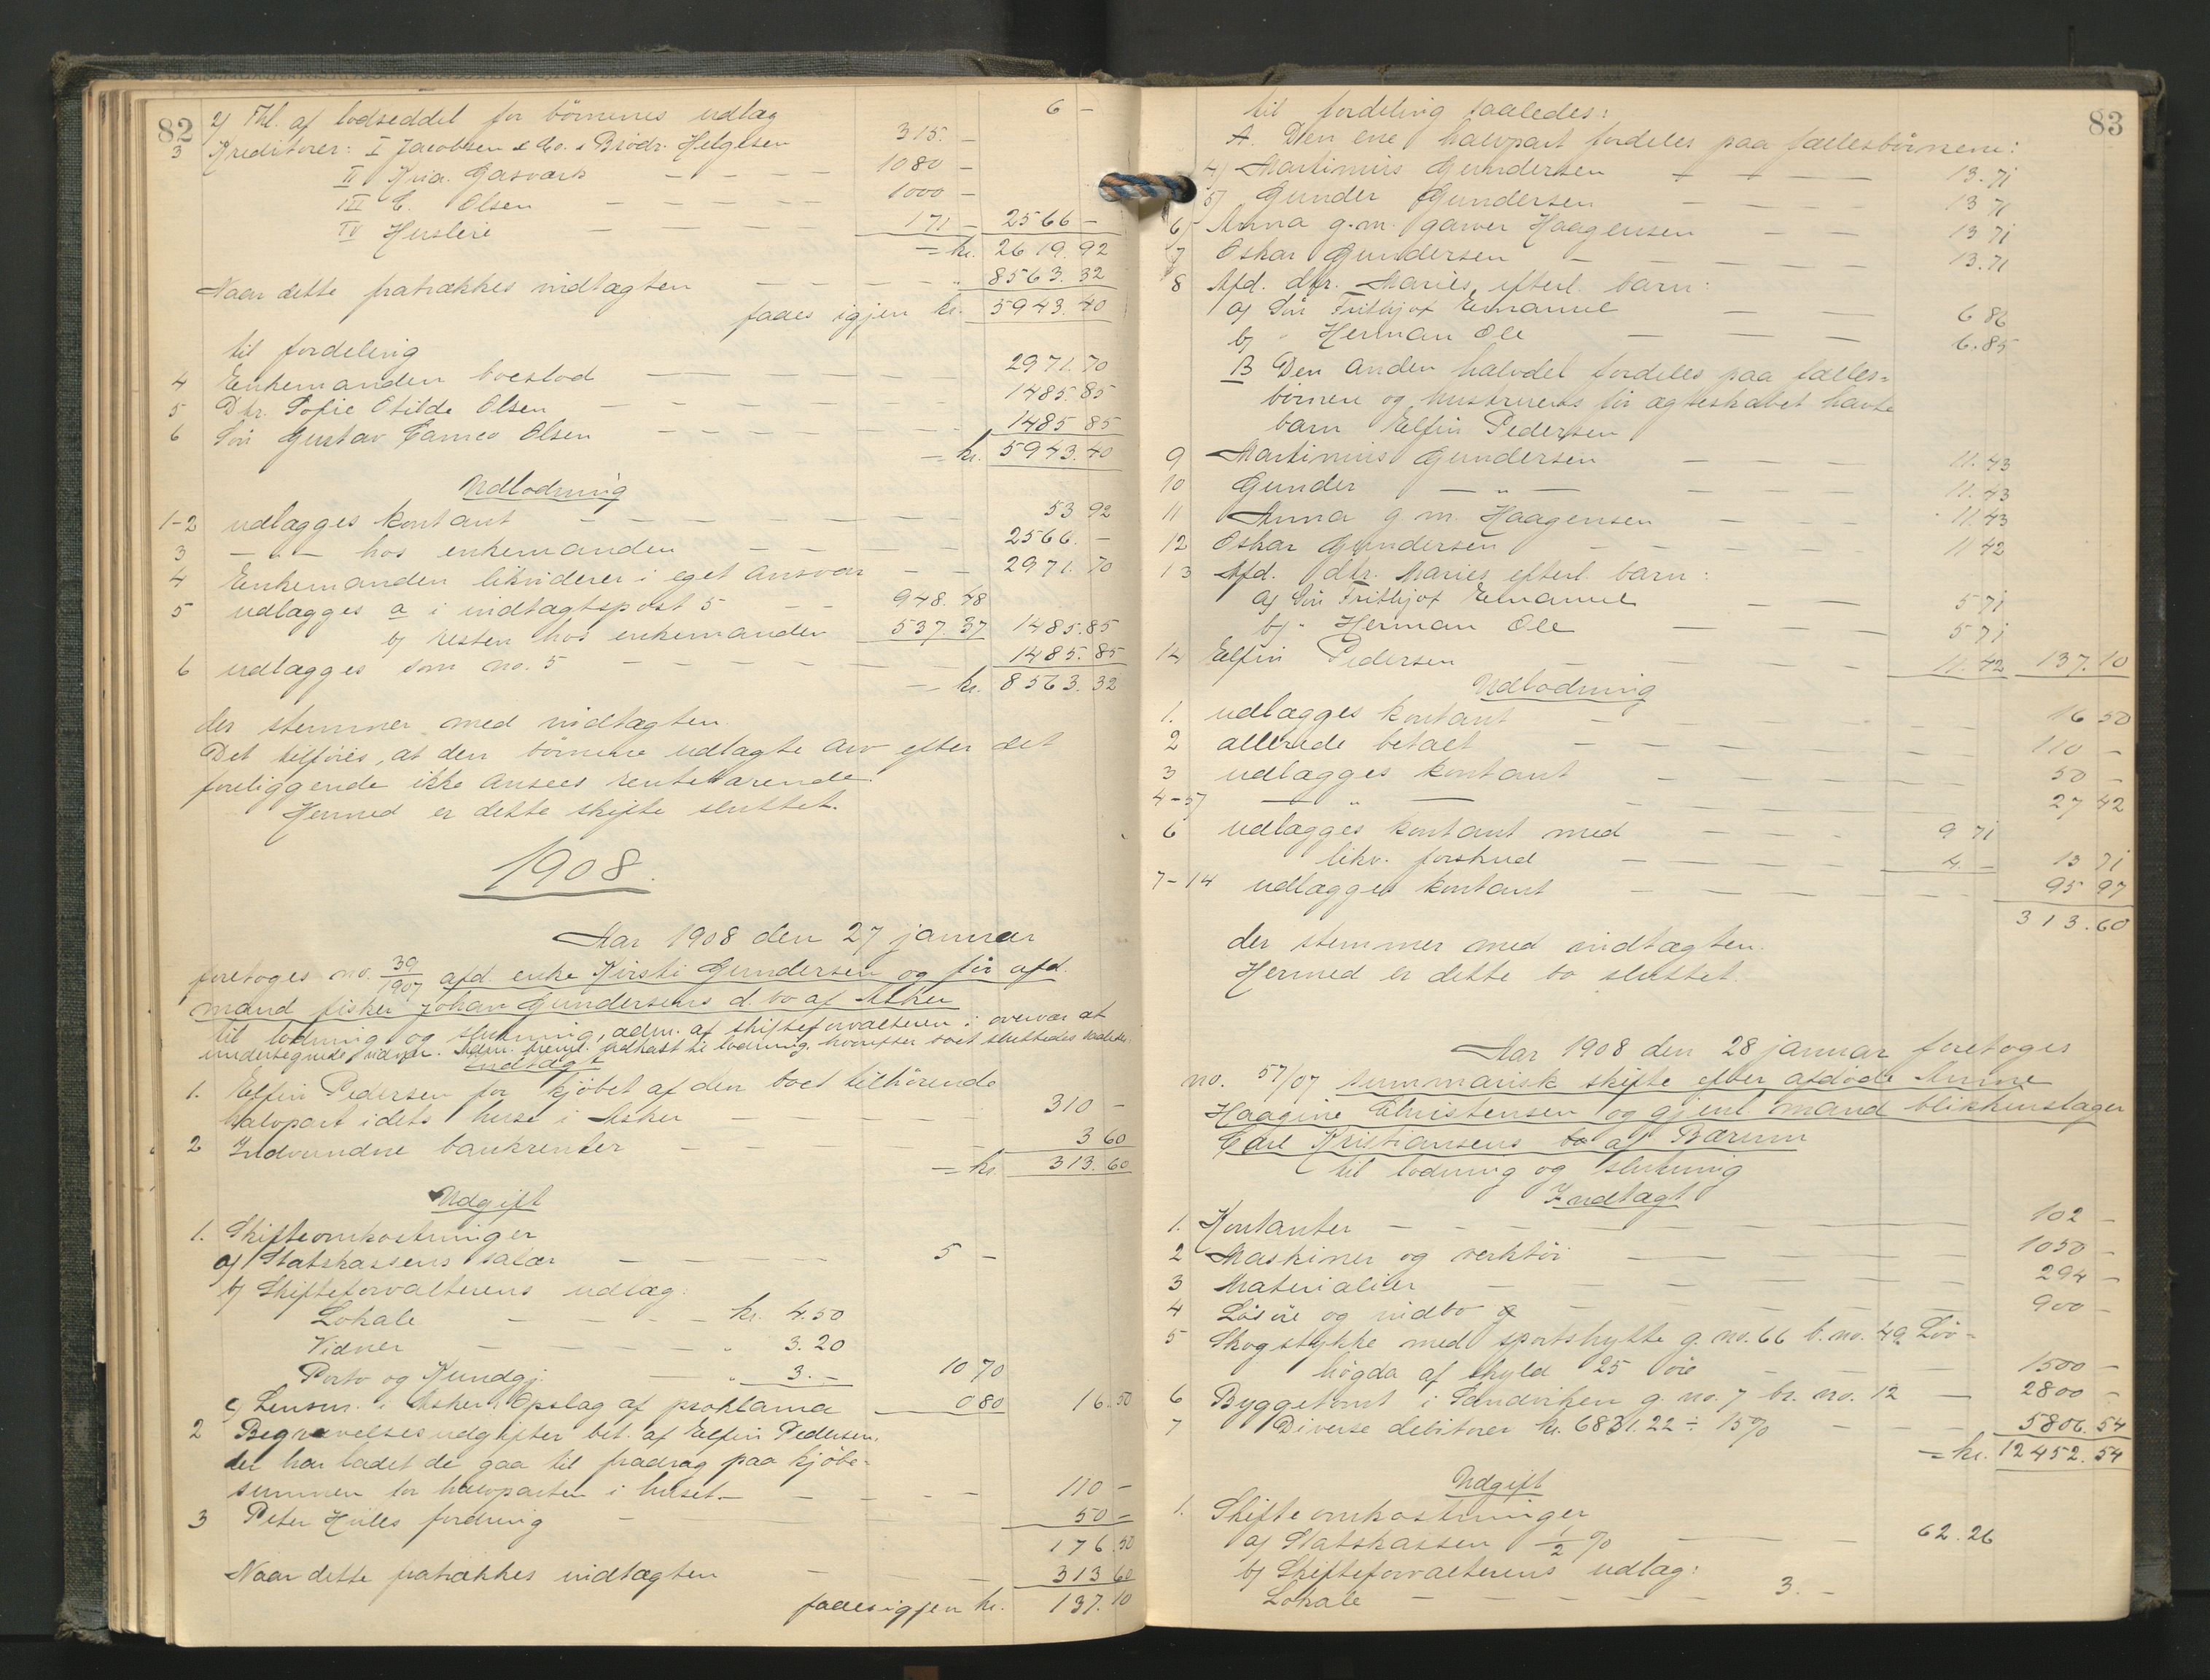 82
2) Thl. af lodseddel for börnenes udlæg 6 -
3 Kreditorer: I Jacobsen & Co. & Brödr. Helgesen 315. -
II Kria. Gasværk - - - - 1080 -
III C. Olsen - - - - - 1000 -
IV Husleie - - - - - 171 - 2566 -
= kr. 2619.92
Naar dette fratrækkes indtægten - - - - " 8563.32
faaes igjen kr. 5943.40
til fordeling
4 Enkemanden boeslod - - - - - 2971.70
5 Dtr. Sofie Otilde Olsen - - - - - 1485.85
6 Sön Gustav Olsen - - - - - 1485 85
= kr. 5943.40
Udlodning
1-2 udlægges kontant - - - - - - 53 92
3 - " - hos enkemanden - - - - 2566. -
4 Enkemanden likviderer i eget ansvar - - 2971.70
5 udlægges a i indtægtspost 5 - - 948.48
b) resten hos enkemanden 537.37 1485.85
6 udlægges som no. 5 - - - - - 1485.85
= kr. 8563.32
der stemmer med indtægten
Det tilföies, at den börnene udlagte arv efter det
foreliggende ikke ansees rentebærende.
Hermed er dette skifte sluttet.
1908.
Aar 1908 den 27 januar
foretoges no. 39/1907 afd. enke Kirsti Gundersen og för afd.
mand fisker Johan Gundersens d. bo af Asker
til lodning og slutning, adm. af skifteforvalteren i overvær af
undertegnede vidner. Adm. freml. udkast til lodning, hvorefter boet sluttedes saaledes.
Indtægt
1. Elfin Pedersen for kjöbet af den boet tilhörende
halvpart i dets huse i Asker - - - - 310 -
2 Indvundne bankrenter - - - - 3 60
= kr. 313.60
Udgift
1. Skifteomkostninger
a) Statskassens salær - - - - 5 -
b) Skifteforvalterens udlæg:
Lokale - - - - kr. 4.50
Vidner - - - - " 3.20
Porto og Kundgj. - - " 3.- 10 70
c) Lensm. i Asker: Opslag af proklama 0 80 16.50
2 Begravelsesudgifter bet. af Elfin Pedersen,
der har ladet de gaa til fradrag paa kjöbe-
summen for halvparten i huset. - - - - 110 -
3 Peter Hülls fordring - - 50 -
176.50
Naar dette fratrækkes indtægten - - - 313 60
faaes igjen kr. 137.10
83
til fordeling saaledes:
A. Den ene halvpart fordeles paa fællesbörnene:
4) Martinius Gundersen - - - - 13.71
5) Gunder Gundersen - - - - 13 71
6) Anna g.m. garver Haagensen - - 13 71
7 Oskar Gundersen - - - - - 13.71
8 Afd. dtr. Maries efterl. barn:
a) Sön Frithjof Emanuel - - - 6 86
b) " Herman Ole - - - 6.85
B Den anden halvdel fordeles paa fælles-
börnene og hustruens för ægteskabet havte
barn Elfin Pedersen
9 Martinius Gundersen - - - 11.43
10 Gunder - " - - - - 11.43
11 Anna g m. Haagensen - - - 11.43
12 Oskar Gundersen - - - - 11 42
13 Afd. dtr. Maries efterl. barn:
a) Sön Frithjof Emanuel - - 5 71
b) " Herman Ole - - - 5 71
14 Elfin Pedersen - - - - 11.42 137.10
Udlodning
1. udlægges kontant - - - - 16 50
2 allerede betalt - - - - - 110 -
3 udlægges kontant - - - - 50 -
4-5) - " - - - - - 27 42
6 udlægges kontant med - - - 9 71
likv. forskud - - - 4 - 13 71
7-14 udlægges kontant - - - - 95 97
313.60
der stemmer med indtægten.
Hermed er dette bo sluttet.
Aar 1908 den 28 januar foretoges
no. 57/07 summarisk skifte efter afdöde Anne
Haagine Christensen og gjenl mand blikkenslager
Carl Kristiansens bo af Bærum
til lodning og slutning
Indtægt
1. Kontanter - - - - - - 102 -
2 Maskiner og verktöi - - - - - 1050 -
3 Materialier - - - - - - 294 -
4 Lösöre og indbo - - - - - 900 -
5 Skogstykke med sportshytte g. no. 66 b. no. 49 Löv-
högda af skyld 25 öre - - - 1500 -
6 Byggetomt i Sandviken g. no. 7 br. no. 12 - 2800 -
7 Diverse debitorer kr. 6831.22 ÷ 15% - - 5806.54
= kr. 12452.54
Udgift
1. Skifteomkostninger
a) Statskassen 1/2 % - - - 62.26
b) Skifteforvalterens udlæg:
Lokale - - - - - 3. -